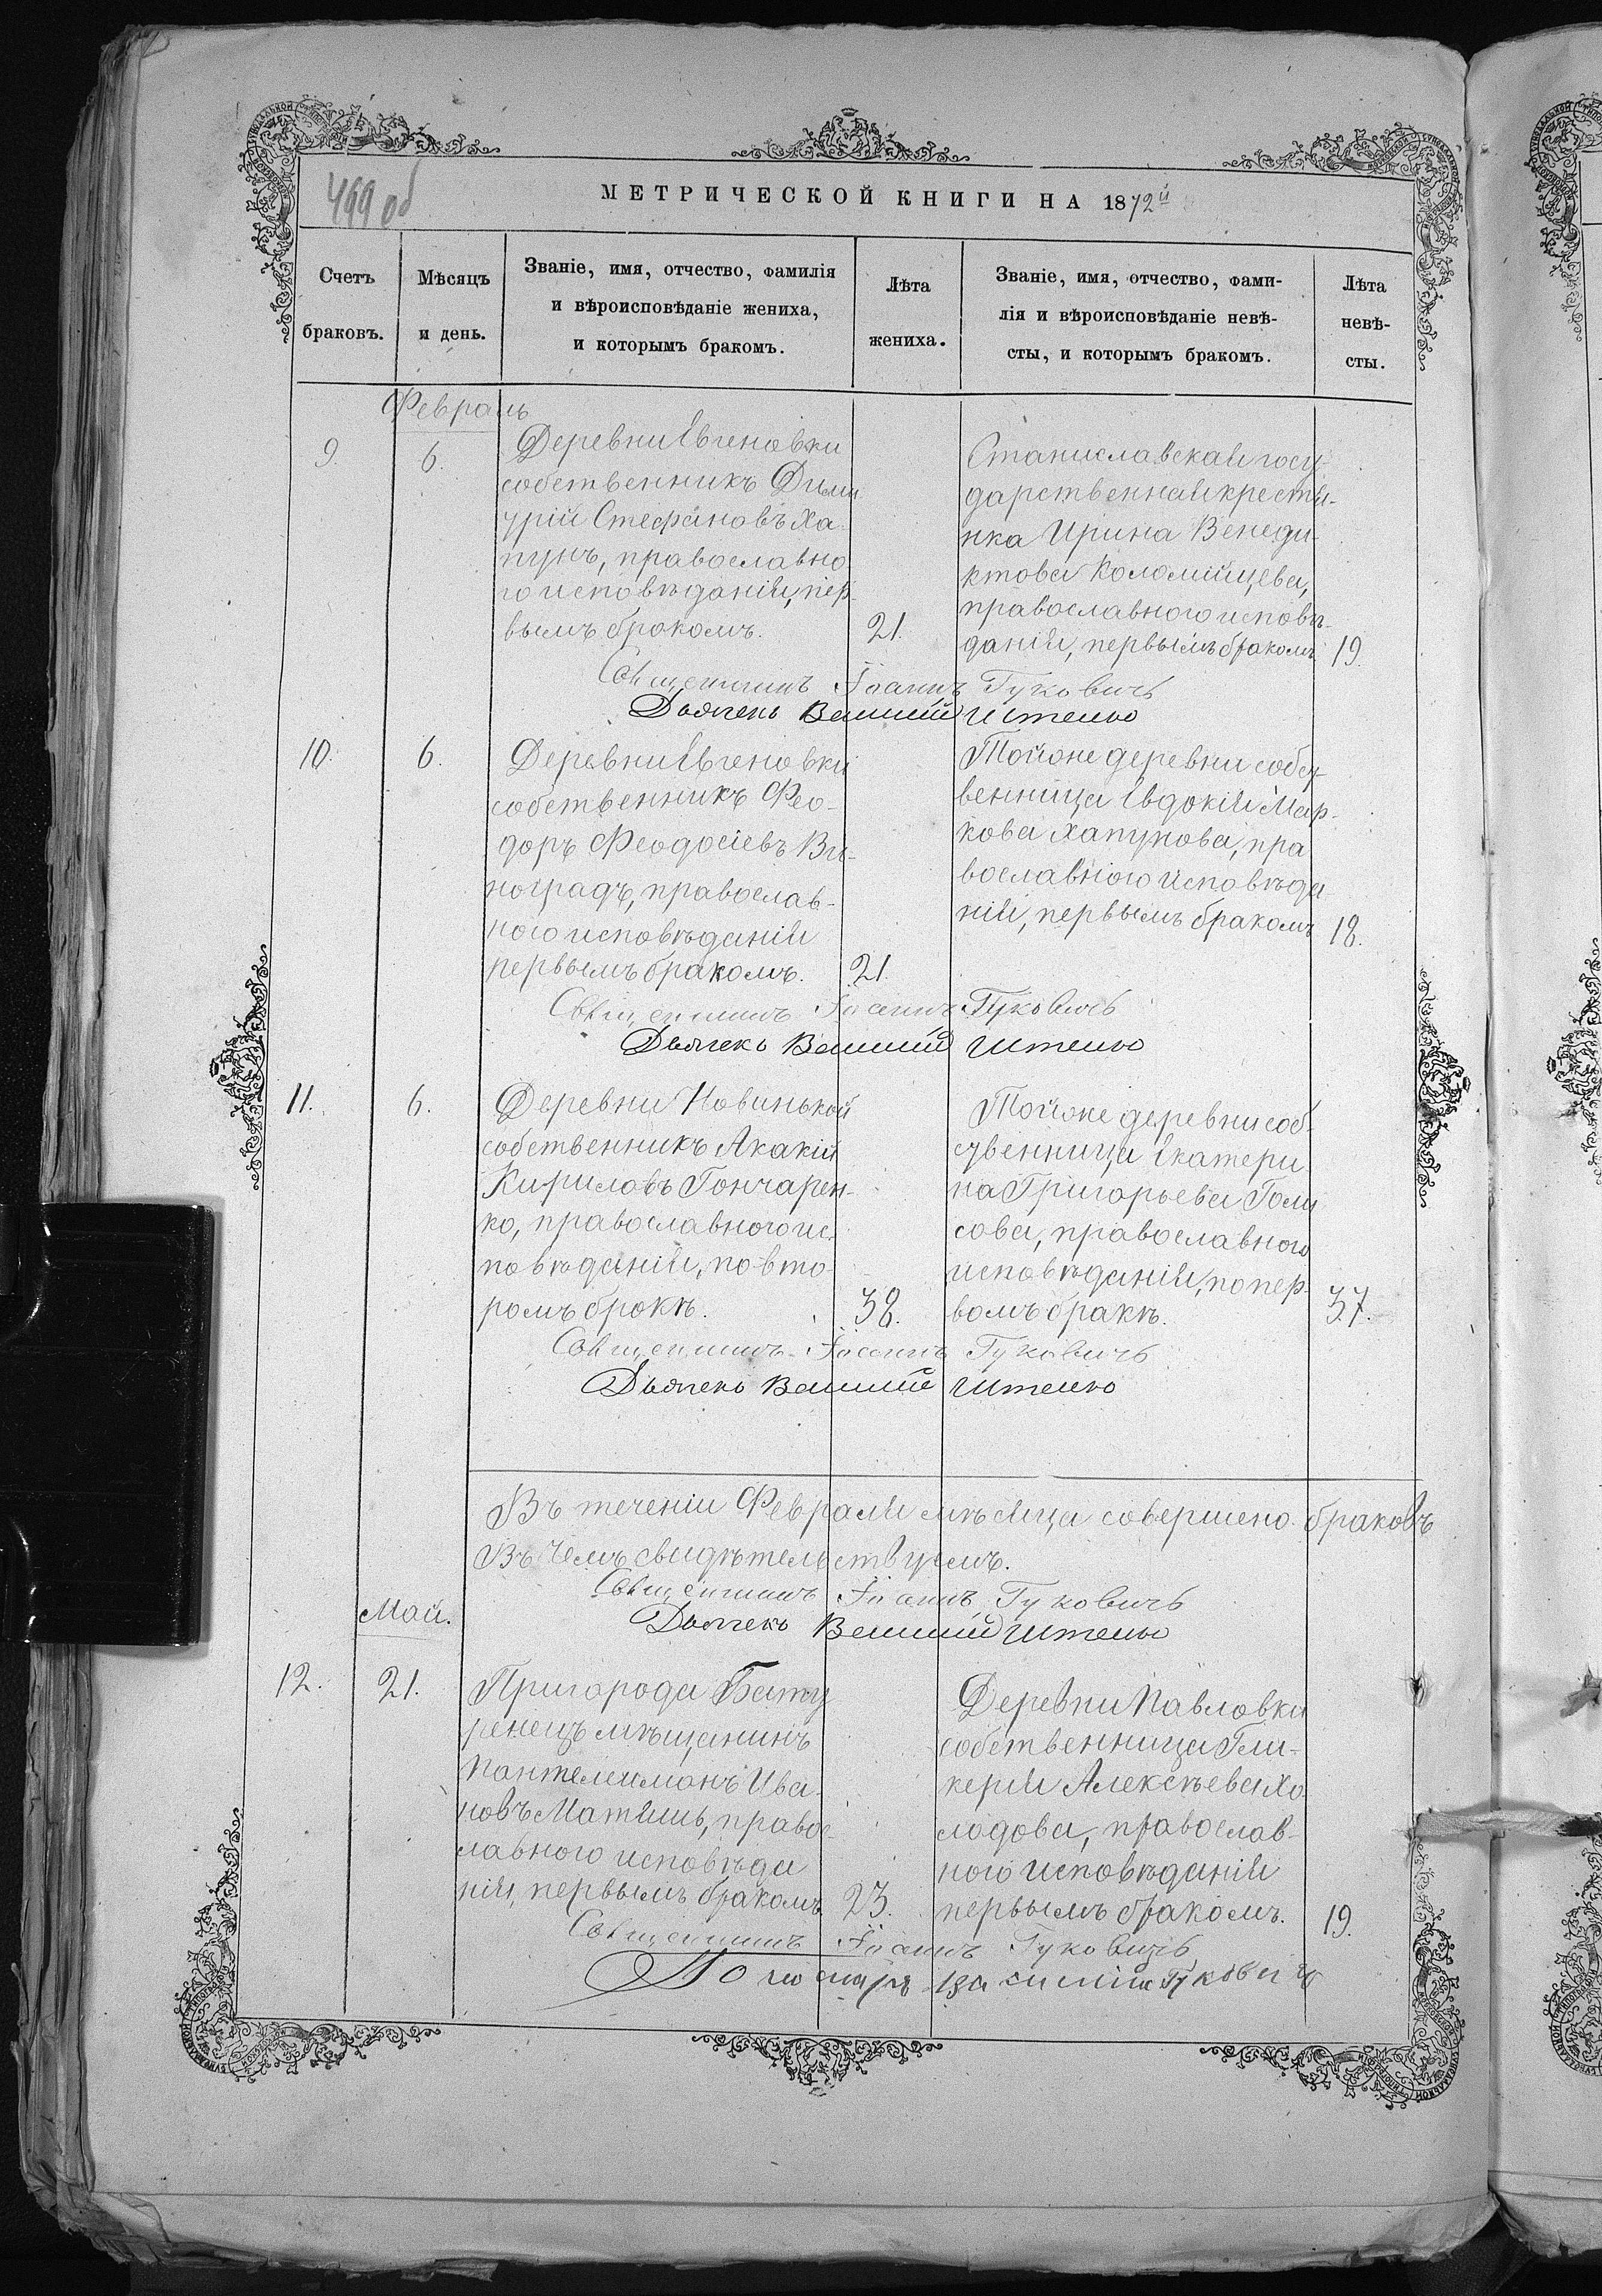 499 об
МЕТРИЧЕСКОЙ КНИГИ НА 1872й
Счетъ браковъ.
Мѣсяцъ и день.
Званіе, имя, отчество, фамилія
и вѣроисповѣданіе жениха,
и которымъ бракомъ.
Лѣта жениха.
Званіе, имя, отчество, фами-
лія и вѣроисповѣданіе невѣ-
сты, и которымъ бракомъ.
Лѣта невѣ-
сты.
Февраль
9. 6.
Деревни Евгеновки
собственникъ Дими
трій Стефановъ Ха
пунъ, православна
го исповѣданія, пер-
вымъ бракомъ. 21.
Станиславская госу-
дарственная крестья-
нка Ирина Венеди-
ктова Коломійцева,
православного исповѣ-
данія, первымъ бракомъ 19.
Священникъ Іоаннъ Гуковичъ
Дьячекъ Василій
10. 6.
Деревни Евгеновки
собственникъ Фео-
доръ Феодосіевъ Ви-
ноградъ, православ-
ного исповѣданія
первымъ бракомъ. 21.
Тойоже деревни собст-
венница Евдокія Мар-
кова Хапунова, пра
вославного исповѣда
нія, первымъ бракомъ 18.
Священникъ Іоаннъ Гуковичъ
Дьячекъ Василій
11. 6.
Деревни Новинькой
собственникъ Акакій
Кириловъ Гончарен-
ко, православного ис
повѣданія, по вто-
ромъ бракѣ. 38.
Тойоже деревни соб-
ственница Екатери
на Григорьева Голи
сова, православного
исповѣданія, по пер-
вомъ бракѣ. 37.
Священникъ Іоаннъ Гуковичъ
Дьячекъ Василій
Въ теченіи Февраля мѣсяца совершено браковъ
Въ чемъ свидѣтельствуемъ.
Священникъ Іоаннъ Гуковичъ
Дьячекъ Василій
Май.
12. 21.
Пригорода Бату
ренецъ мѣщанинъ
Пантелеимонъ Ива
новъ Матяшъ, правос-
лавного исповѣда
нія, первымъ бракомъ 23.
Деревни Павловки
собственница Гли-
керія Алексѣева Хо
лодова, православ-
ного исповѣданія
первымъ бракомъ. 19.
Священникъ Іоаннъ Гуковичъ
Пономарь Гуковичъ